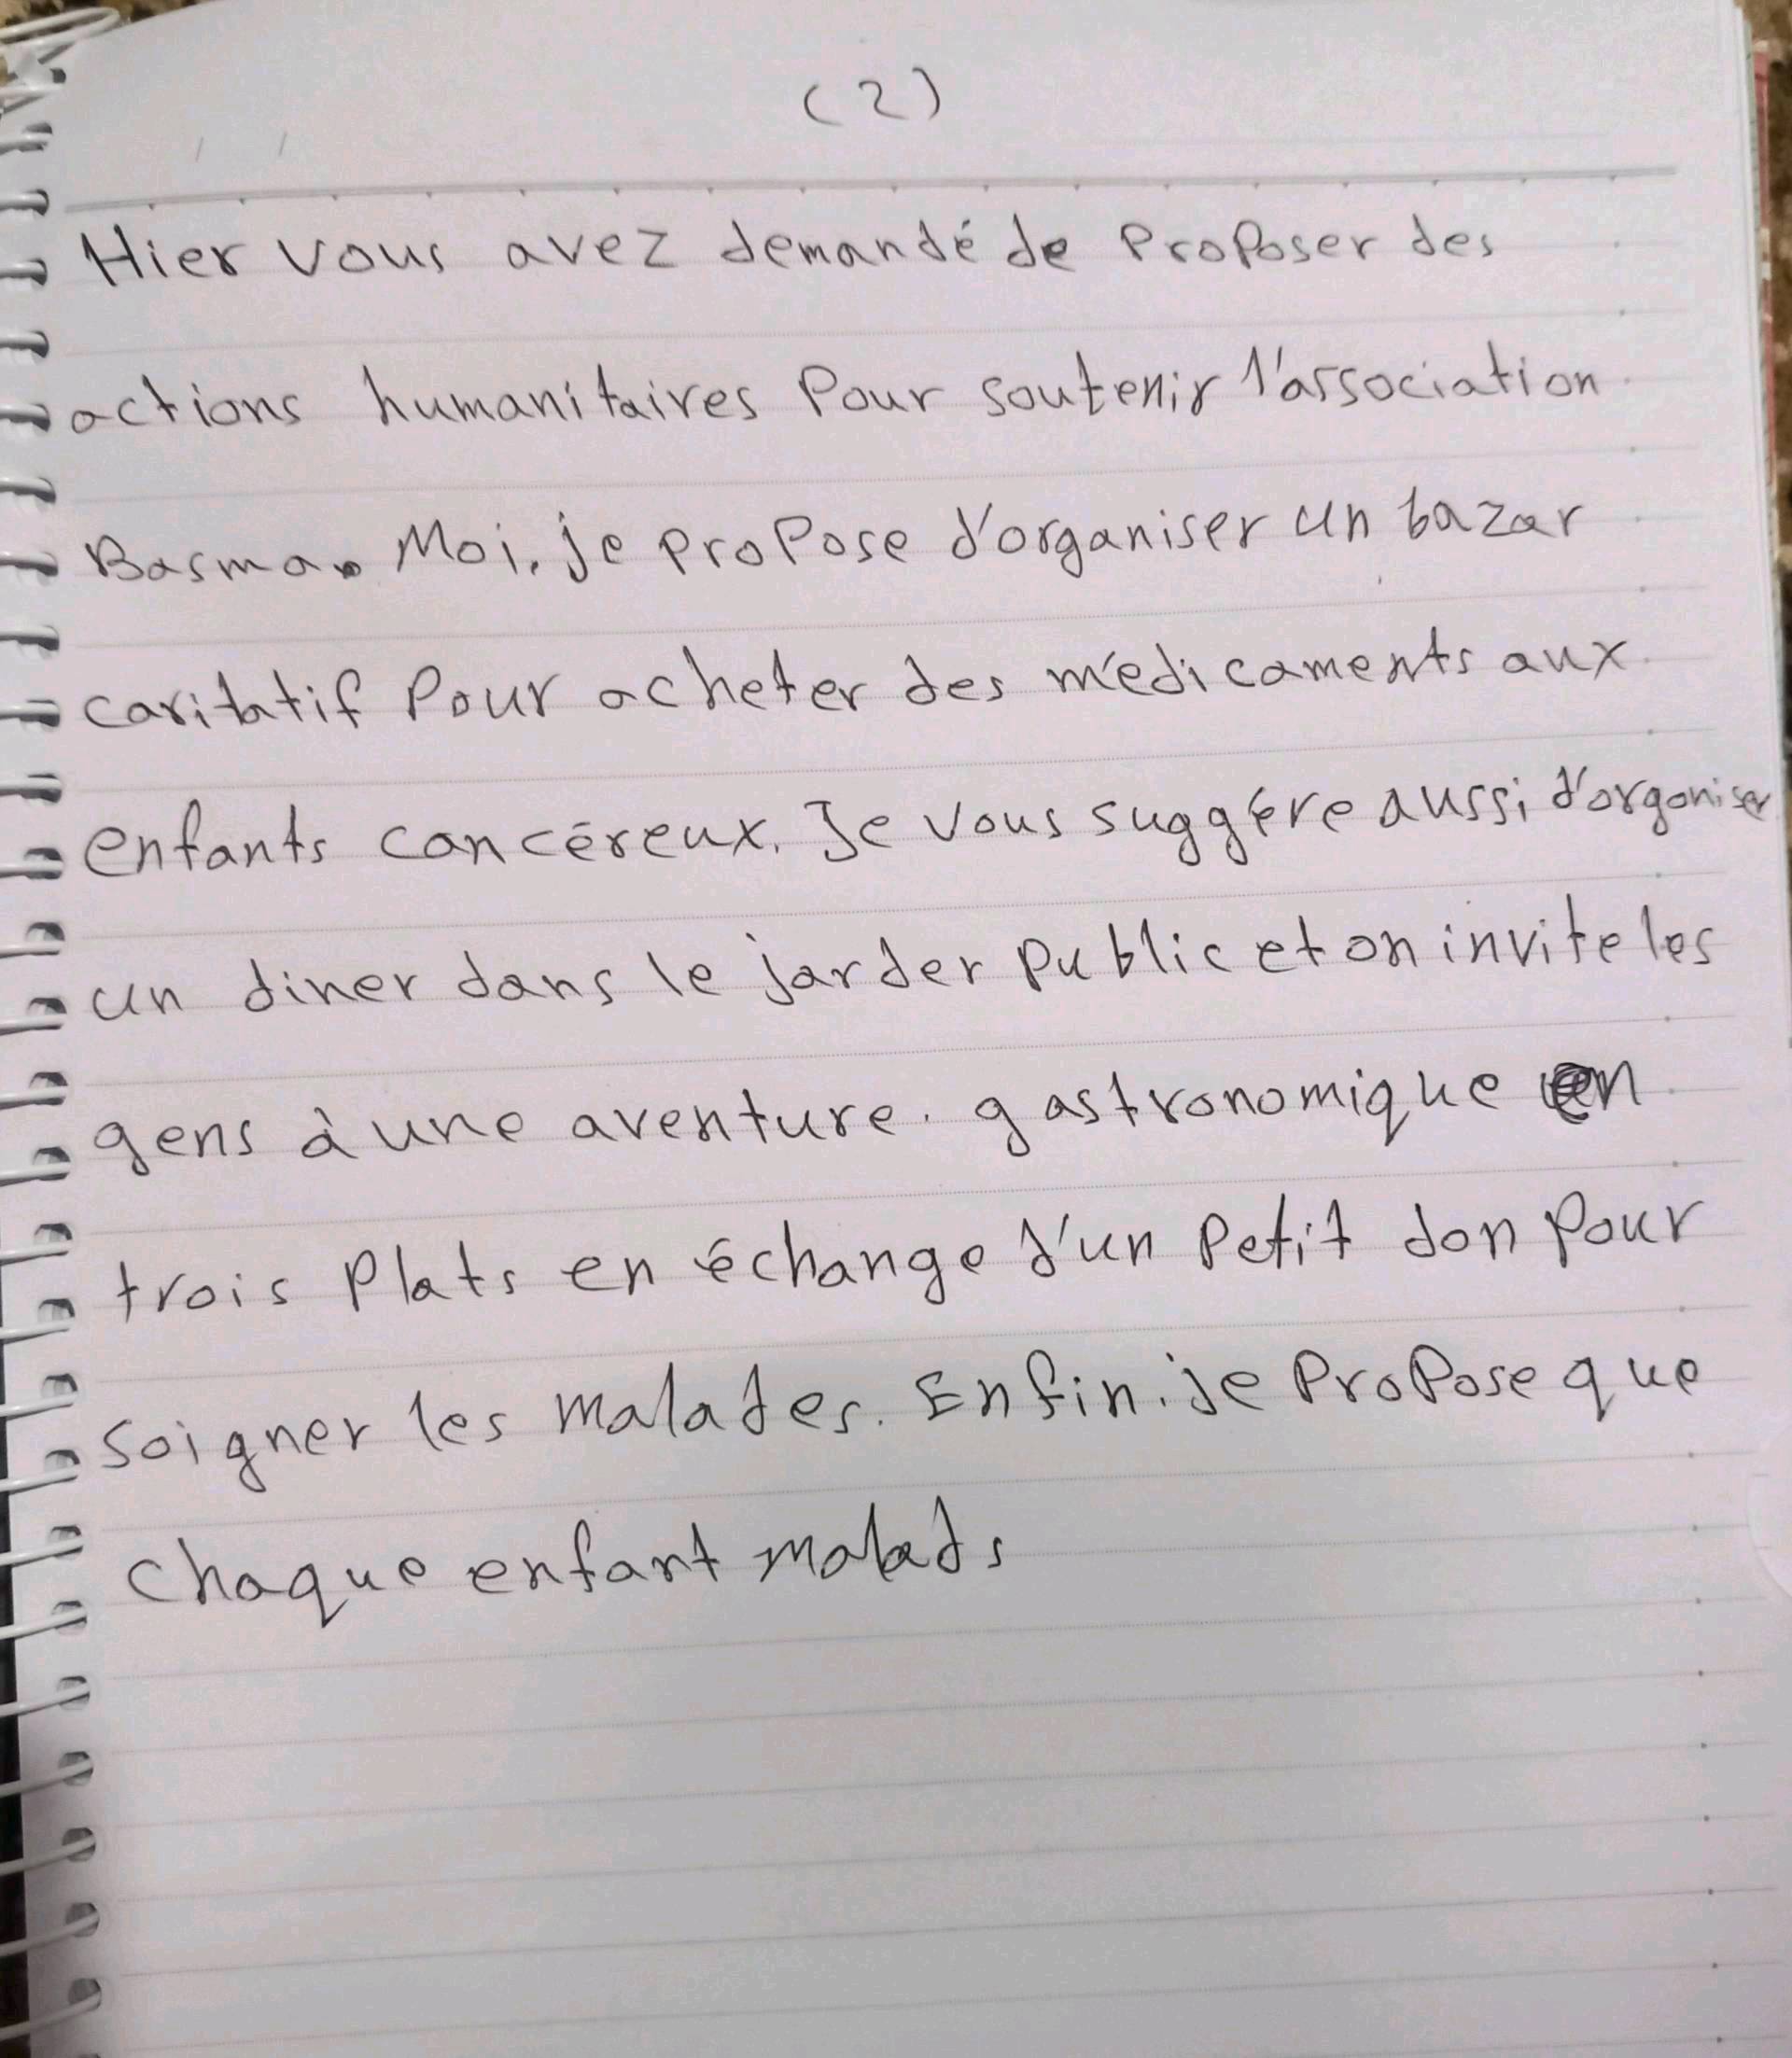 (2)
Hier vous avez demandé de proposer des
actions humanitaires pour soutenir l'association
Basma. Moi, je propose d'organiser un bazar
caritatif pour acheter des médicaments aux
enfants cancéreux. Je vous suggére aussi d'organiser
un diner dans le jarder public et on invite les
gens à une aventure. gastronomique en
trois plats en échange d'un petit don pour
soigner les malades. Enfin. je propose que
chaque enfant malads